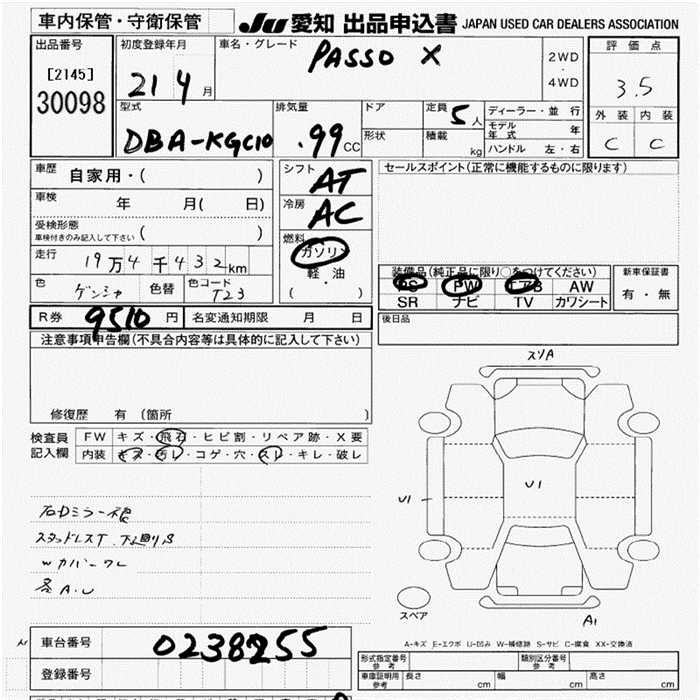 車内保管・守衛保管
JU 愛知 出品申込書 JAPAN USED CAR DEALERS ASSOCIATION
出品番号
[2145]
30098
初度登録年月
21 4 月
車名・グレード
PASSO X
2WD
・
4WD
評価点
3.5
外装 内装
C C
型式
DBA-KGC10
排気量
.99 CC
ドア
形状
定員 5 人
積載 kg
ディーラー・並行
モデル年式 年
ハンドル 左・右
車歴 自家用・( )
車検 年 月( 日)
受検形態
車検付きのみ記入して下さい ( )
走行 19万4千432km
色 ゲンシャ 色替 色コード T23
シフト AT
冷房 AC
燃料
ガソリン
・
軽油
( )
セールスポイント(正常に機能するものに限ります)
装備品(純正品に限り○をつけてください)
PS PW エアB AW
SR ナビ TV カワシート
新車保証書
有・無
R券 9510 円 名変通知期限 月 日
後日品
注意事項申告欄(不具合内容等は具体的に記入して下さい)
修復歴 有 (箇所 )
検査員記入欄
FW キズ・飛石・ヒビ割・リペア跡・X要
内装 キズ・汚レ・コゲ・穴・スレ・キレ・破レ
スリA
U1
U1
A1
スペア
A-キズ E-エクボ U-凹み W-補修跡 S-サビ C-腐食 XX-交換済
車台番号 0238255
登録番号
形式指定番号 参考
類別区分番号 参考
車庫証明用 参考 長さ cm 幅 cm 高さ cm